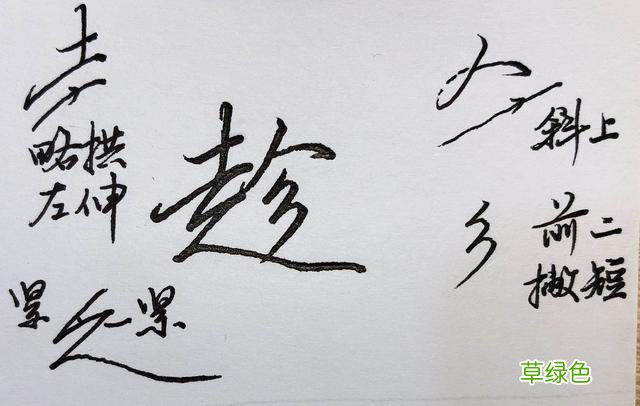 略拱
左伸
趁
紧 紧
斜上
前二
撇短
草绿色